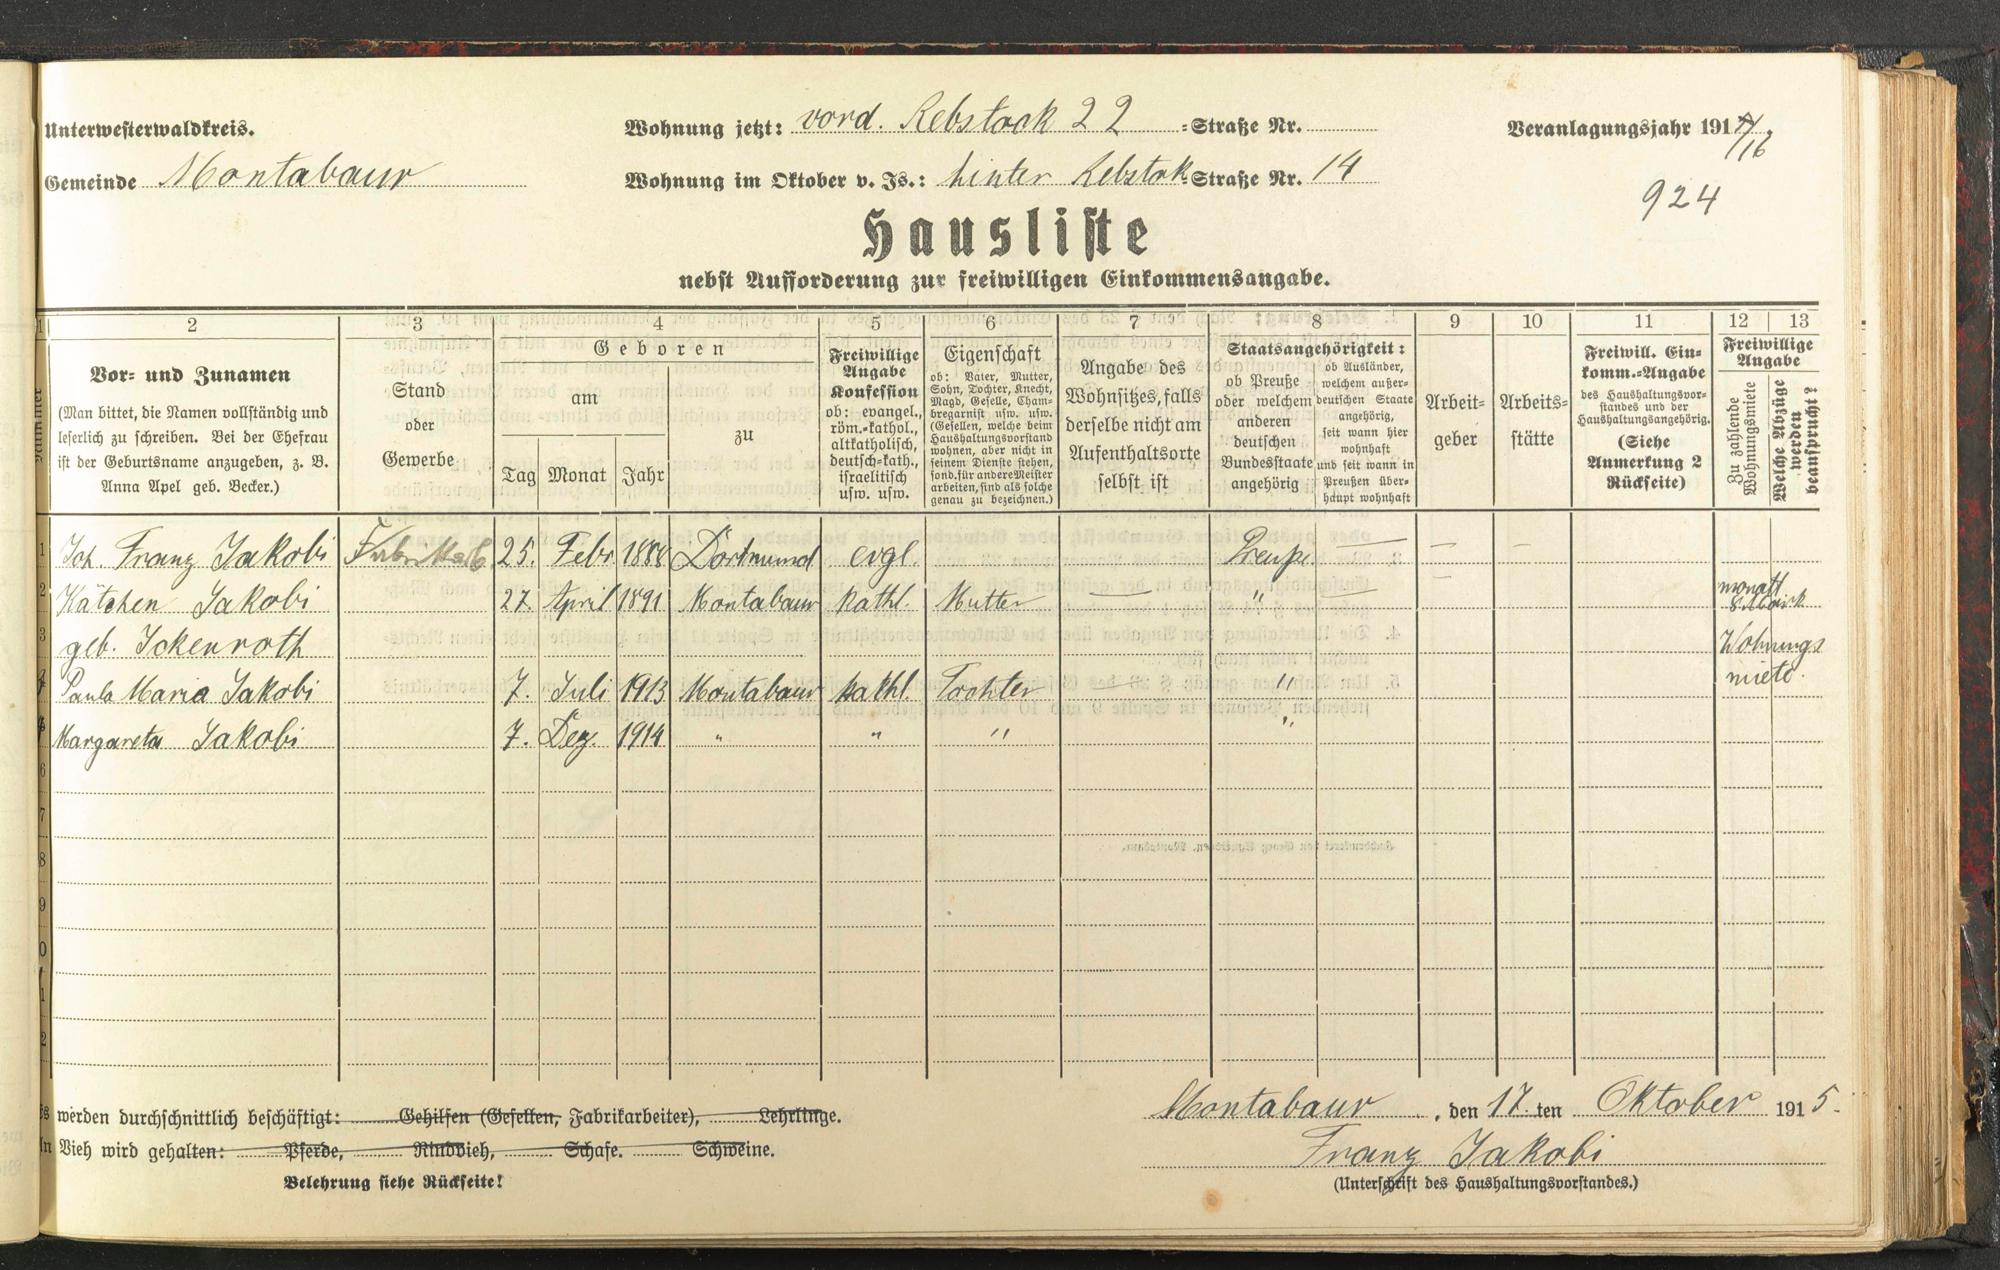 Unterwesterwaldkreis.
Gemeinde Montabaur
Wohnung jetzt: vord. Rebstock 22 =Straße Nr.
Wohnung im Oktober v. Js.: hinter Rebstok =Straße Nr. 14
Veranlagungsjahr 191
/16
924
Hausliste
nebst Aufforderung zur freiwilligen Einkommensangabe.
1 2 3 4 5 6 7 8 9 10 11 12 13
Nummer
Vor= und Zunamen
(Man bittet, die Namen vollständig und
leserlich zu schreiben. Bei der Ehefrau
ist der Geburtsname anzugeben, z. B.
Anna Apel geb. Becker.)
Stand
oder
Gewerbe
Geboren
am
Tag Monat Jahr
zu
Freiwillige
Angabe
Konfession
ob: evangel.,
röm.=kathol.,
altkatholisch,
deutsch=kath.,
israelitisch
usw. usw.
Eigenschaft
ob: Vater, Mutter,
Sohn, Tochter, Knecht,
Magd, Geselle, Cham=
bregarnist usw. usw.
(Gesellen, welche beim
Haushaltungsvorstand
wohnen, aber nicht in
seinem Dienste stehen,
sond. für andere Meister
arbeiten, sind als solche
genau zu bezeichnen.)
Angabe des
Wohnsitzes, falls
derselbe nicht am
Aufenthaltsorte
selbst ist
Staatsangehörigkeit:
ob Preuße
oder welchem
anderen
deutschen
Bundesstaate
angehörig
ob Ausländer,
welchem außer=
deutschen Staate
angehörig,
seit wann hier
wohnhaft
und seit wann in
Preußen über=
haupt wohnhaft
Arbeit=
geber
Arbeits=
stätte
Freiwill. Ein=
komm.=Angabe
des Haushaltungsvor=
standes und der
Haushaltungsangehörig.
(Siehe
Anmerkung 2
Rückseite)
Freiwillige
Angabe
Zu zahlende
Wohnungsmiete
Welche Abzüge
werden
beansprucht?
1 Joh. Franz Jakobi 25. Febr 1888 Dortmund evgl. Preuße — — —
2 Kätchen Jakobi 27. April 1891 Montabaur kathl. Mutter — " — monatl
8 Mark
3 geb. Ickenroth Wohnungs
4 Paula Maria Jakobi 7. Juli 1913 Montabaur kathl. Tochter — " miete.
Margareta Jakobi 7. Dez. 1914 " " " "
6
7
8
9
0
1
2
werden durchschnittlich beschäftigt: Gehilfen (Gesellen, Fabrikarbeiter), Lehrlinge.
An Vieh wird gehalten: Pferde, Rindvieh, Schafe. Schweine.
Belehrung siehe Rückseite!
Montabaur, den 17. ten Oktober 1915.
Franz Jakobi
(Unterschrift des Haushaltungsvorstandes.)